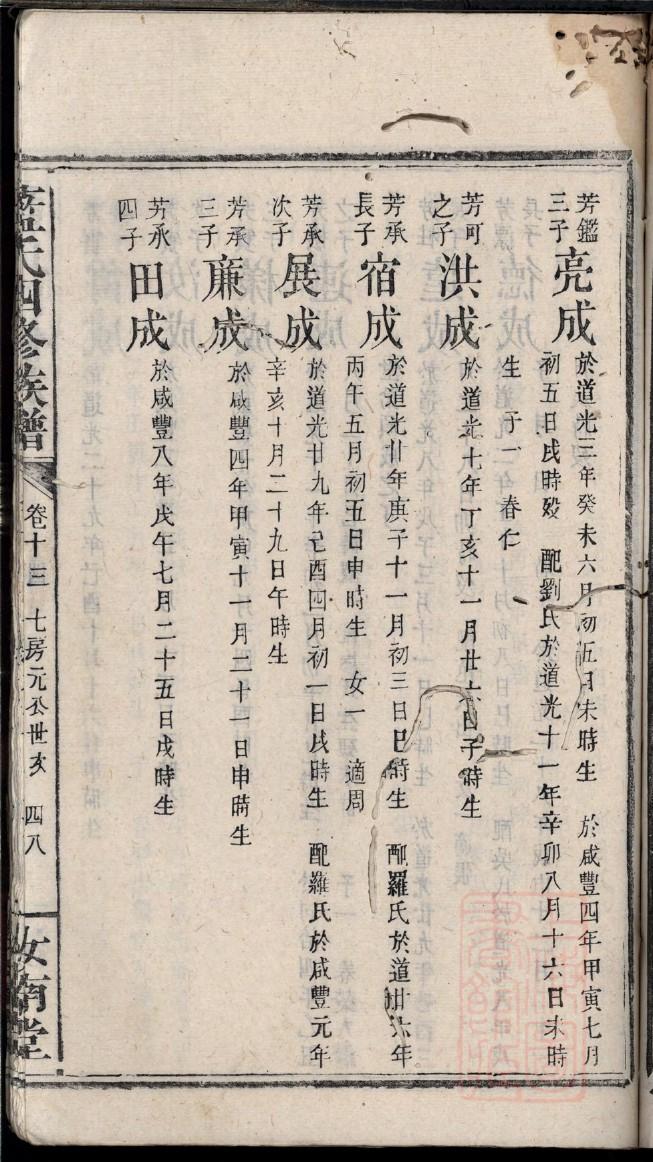 芳鑑三子 亮成 於道光三年癸未六月初五日未時生 於咸豐四年甲寅七月
初五日戌時歿 配劉氏於道光十一年辛卯八月十六日未時
生 子一 春仁
芳可之子 洪成 於道光七年丁亥十一月廿六日子時生
芳承長子 宿成 於道光廿年庚子十一月初三日巳時生 配羅氏於道卅六年
丙午五月初五日申時生 女一 適周
芳承次子 展成 於道光廿九年己酉四月初一日戌時生 配羅氏於咸豐元年
辛亥十月二十九日午時生
芳承三子 廉成 於咸豐四年甲寅十一月二十一日申時生
芳承四子 田成 於咸豐八年戊午七月二十五日戌時生
藍氏四修族譜 卷十三 七房元公世亥 四八 汝南堂